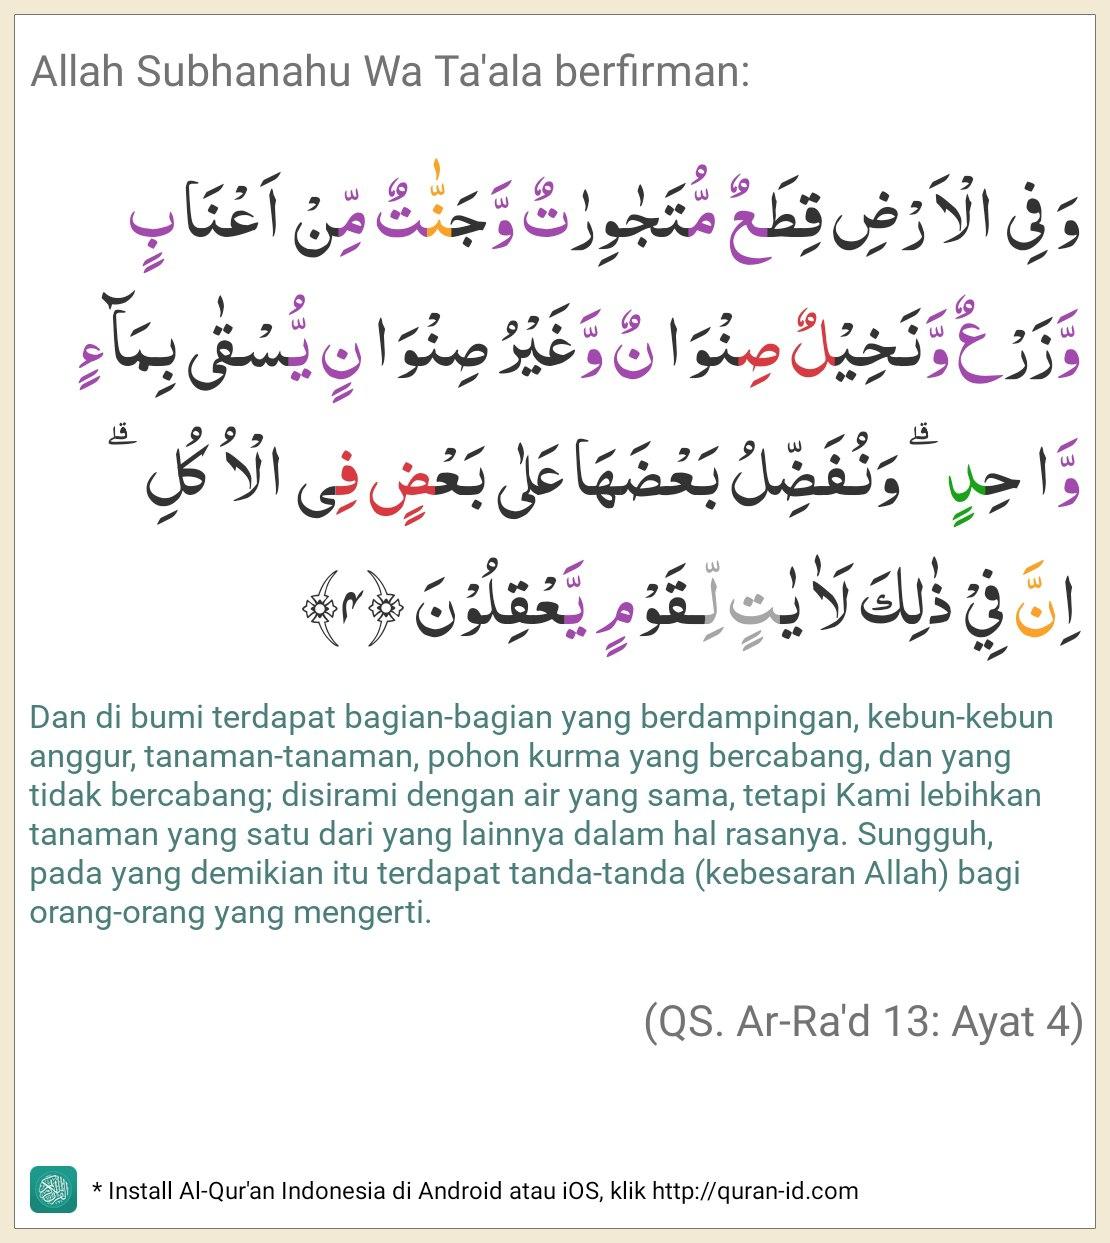 Allah Subhanahu Wa Ta'ala berfirman:
وَ فِى الْاَ رْضِ قِطَعٌ مُّتَجٰوِرٰتٌ وَّجَنّٰتٌ مِّنْ اَعْنَا بٍ
وَّزَرْعٌ وَّنَخِيْلٌ صِنْوَا نٌ وَّغَيْرُ صِنْوَا نٍ يُّسْقٰى بِمَآءٍ
وَّا حِدٍ ۗ وَنُفَضِّلُ بَعْضَهَا عَلٰى بَعْضٍ فِى الْاُ كُلِ ۗ
اِنَّ فِيْ ذٰلِكَ لَاٰ يٰتٍ لِّـقَوْمٍ يَّعْقِلُوْنَ ﴿۴﴾
Dan di bumi terdapat bagian-bagian yang berdampingan, kebun-kebun
anggur, tanaman-tanaman, pohon kurma yang bercabang, dan yang
tidak bercabang; disirami dengan air yang sama, tetapi Kami lebihkan
tanaman yang satu dari yang lainnya dalam hal rasanya. Sungguh,
pada yang demikian itu terdapat tanda-tanda (kebesaran Allah) bagi
orang-orang yang mengerti.
(QS. Ar-Ra'd 13: Ayat 4)
* Install Al-Qur'an Indonesia di Android atau iOS, klik http://quran-id.com